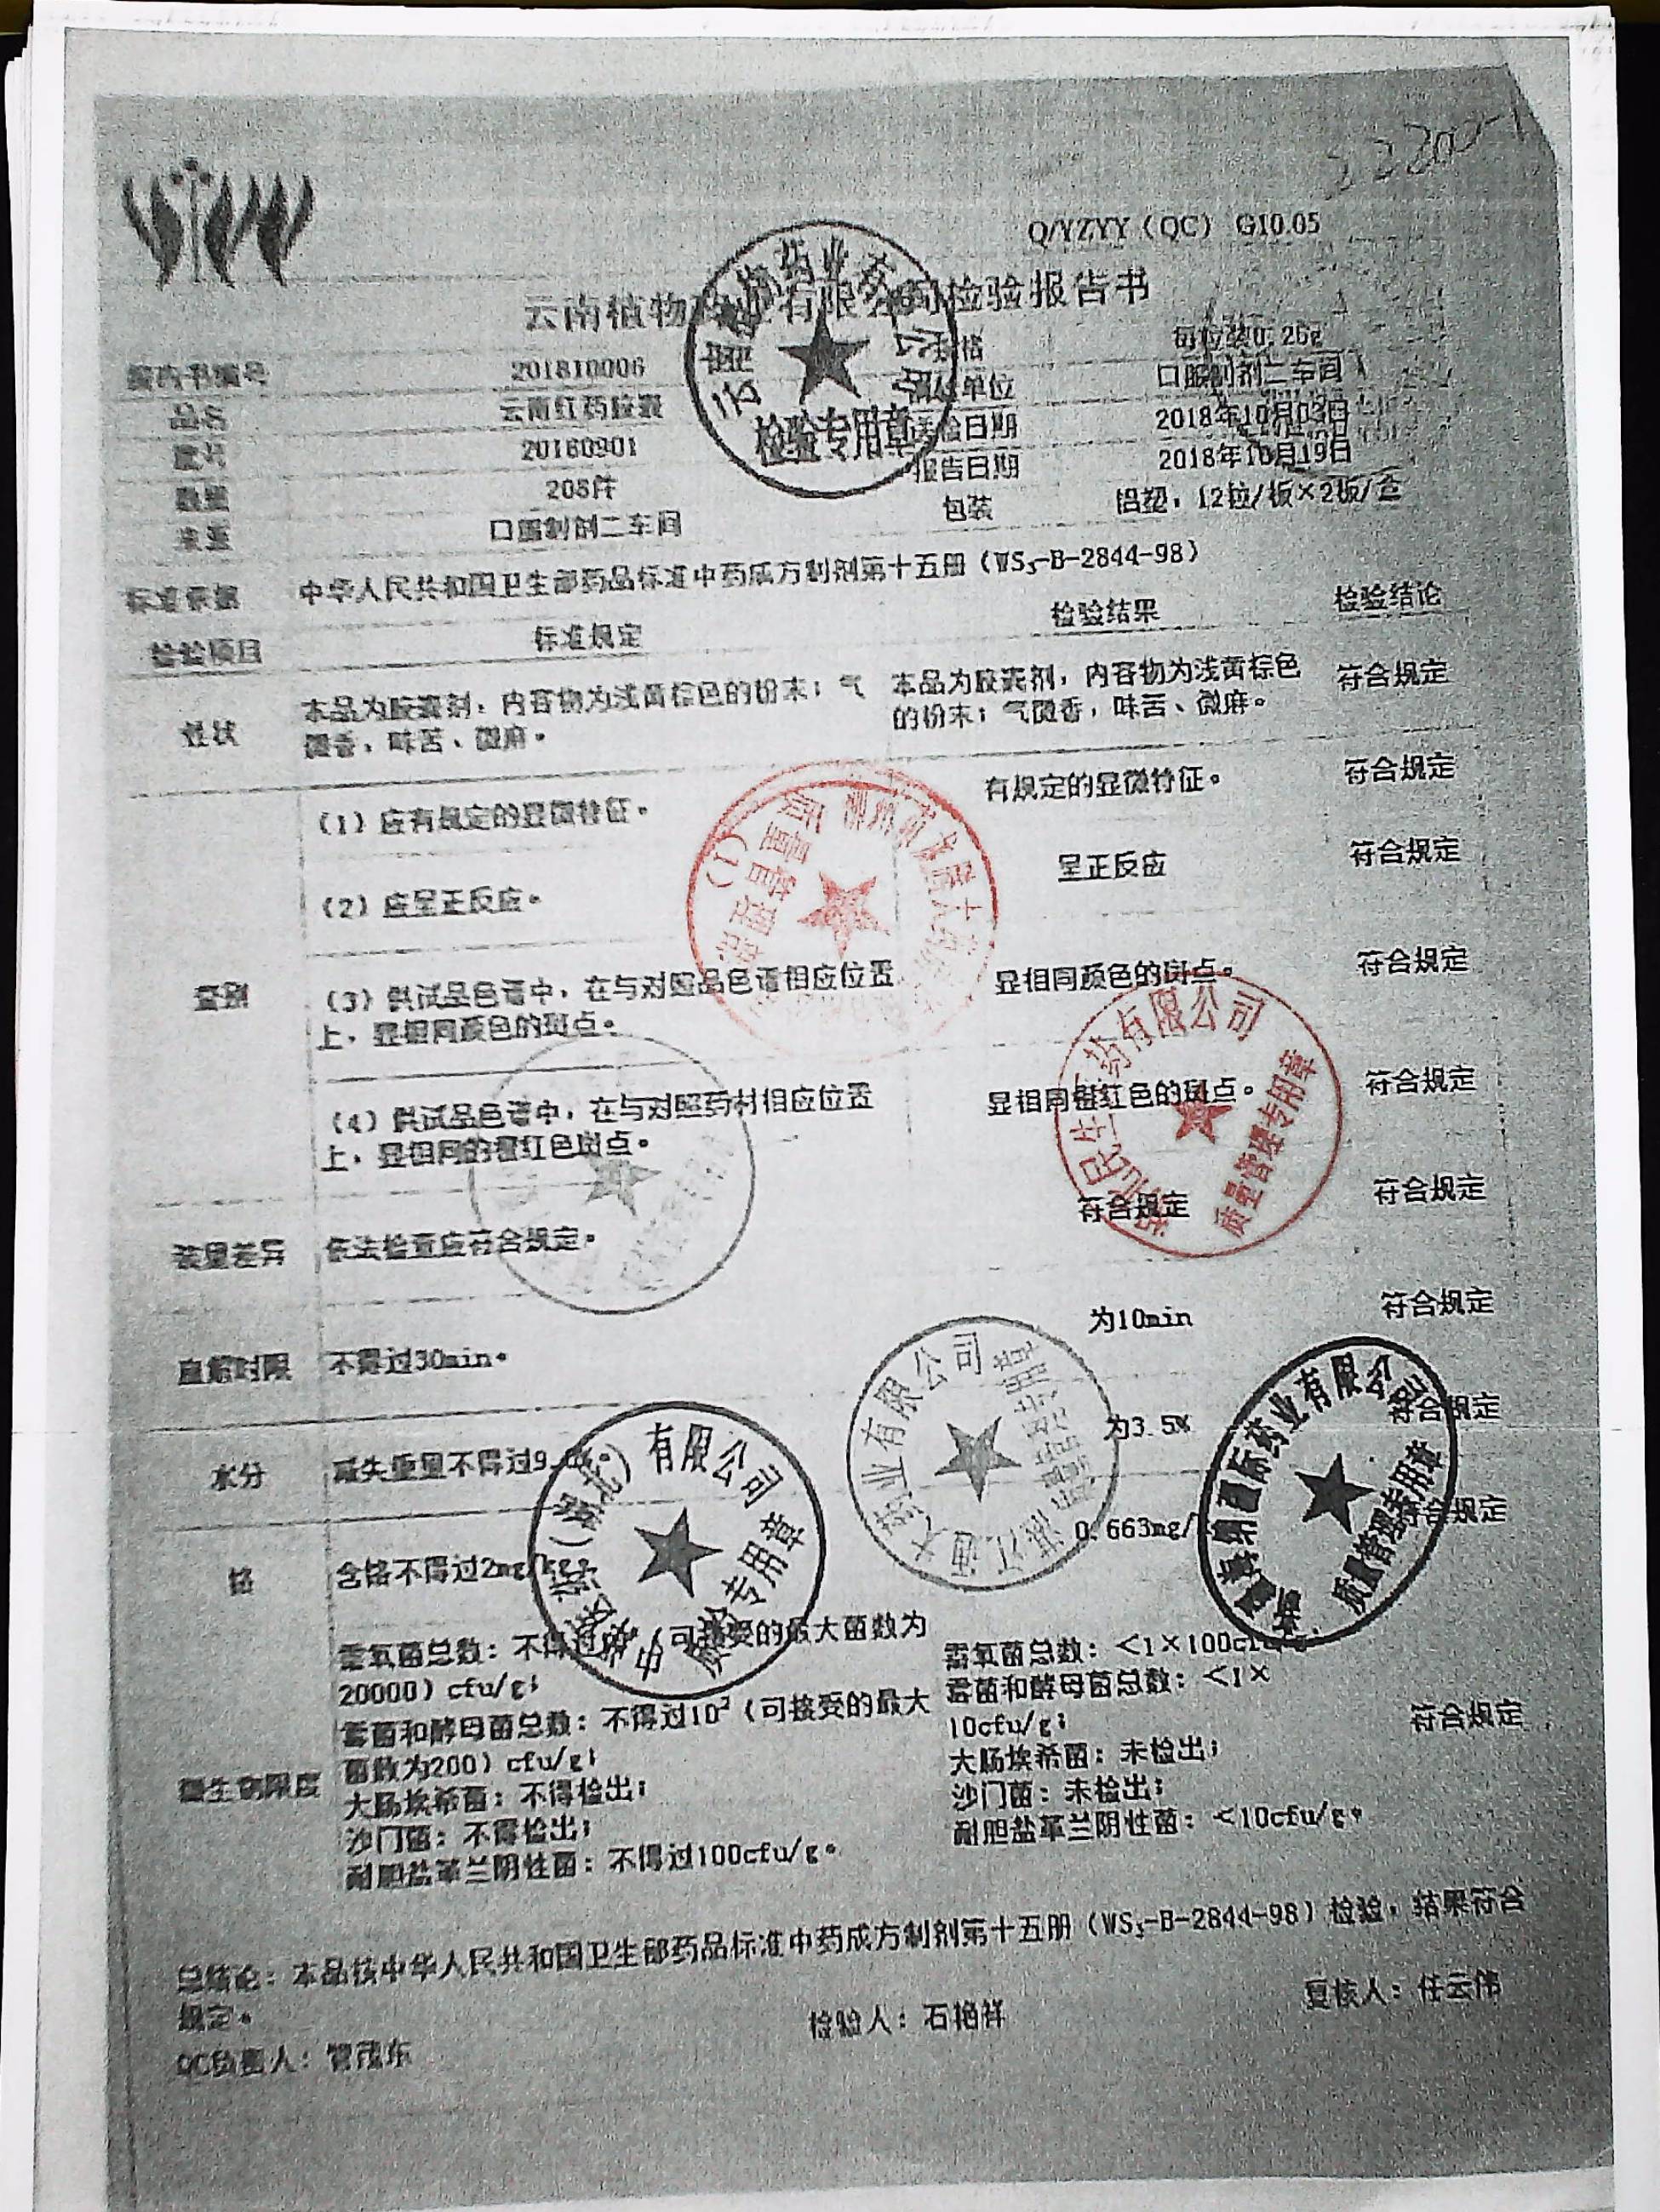 Q/YZYY（QC）G10.05
云南植物药业有限公司检验报告书
201810006 规格 每粒装0.26g
品名 云南红药胶囊 单位 口服制剂二车间
批号 20180901 检日期 2018年10月03日
数量 208件 报告日期 2018年10月19日
来源 口服制剂二车间 包装 铝塑，12粒/板×2板/盒
标准依据 中华人民共和国卫生部药品标准中药成方制剂第十五册（WS₃-B-2844-98）
检验项目 标准规定 检验结果 检验结论
性状 本品为胶囊剂，内容物为浅黄棕色的粉末；气 本品为胶囊剂，内容物为浅黄棕色 符合规定
微香，味苦、微麻。 的粉末；气微香，味苦、微麻。
（1）应有规定的显微特征。 有规定的显微特征。 符合规定
（2）应呈正反应。 呈正反应 符合规定
鉴别 （3）供试品色谱中，在与对照品色谱相应位置 显相同颜色的斑点。 符合规定
上，显相同颜色的斑点。
（4）供试品色谱中，在与对照药材相应位置 显相同橙红色的斑点。 符合规定
上，显相同的橙红色斑点。
装量差异 依法检查应符合规定。 符合规定 符合规定
崩解时限 不得过30min。 为10min 符合规定
水分 减失重量不得过9. 为3.5% 符合规定
铬 含铬不得过2mg/kg。 0.663mg/ 符合规定
需氧菌总数：不得过 （可接受的最大菌数为 需氧菌总数：<1×100cfu/g；
20000）cfu/g； 霉菌和酵母菌总数：<1×
霉菌和酵母菌总数：不得过10²（可接受的最大 10cfu/g；
菌数为200）cfu/g； 大肠埃希菌：未检出； 符合规定
微生物限度 大肠埃希菌：不得检出； 沙门菌：未检出；
沙门菌：不得检出； 耐胆盐革兰阴性菌：<10cfu/g。
耐胆盐革兰阴性菌：不得过100cfu/g。
总结论：本品按中华人民共和国卫生部药品标准中药成方制剂第十五册（WS₃-B-2844-98）检验，结果符合
规定。
QC负责人：管茂东 检验人：石艳祥 复核人：任云伟
检验专用章
质量管理部
（1）
民生医药有限公司
质量管理专用章
（湖北）有限公司
专用章
大药业有限公司
国际药业有限公司
质量管理专用章